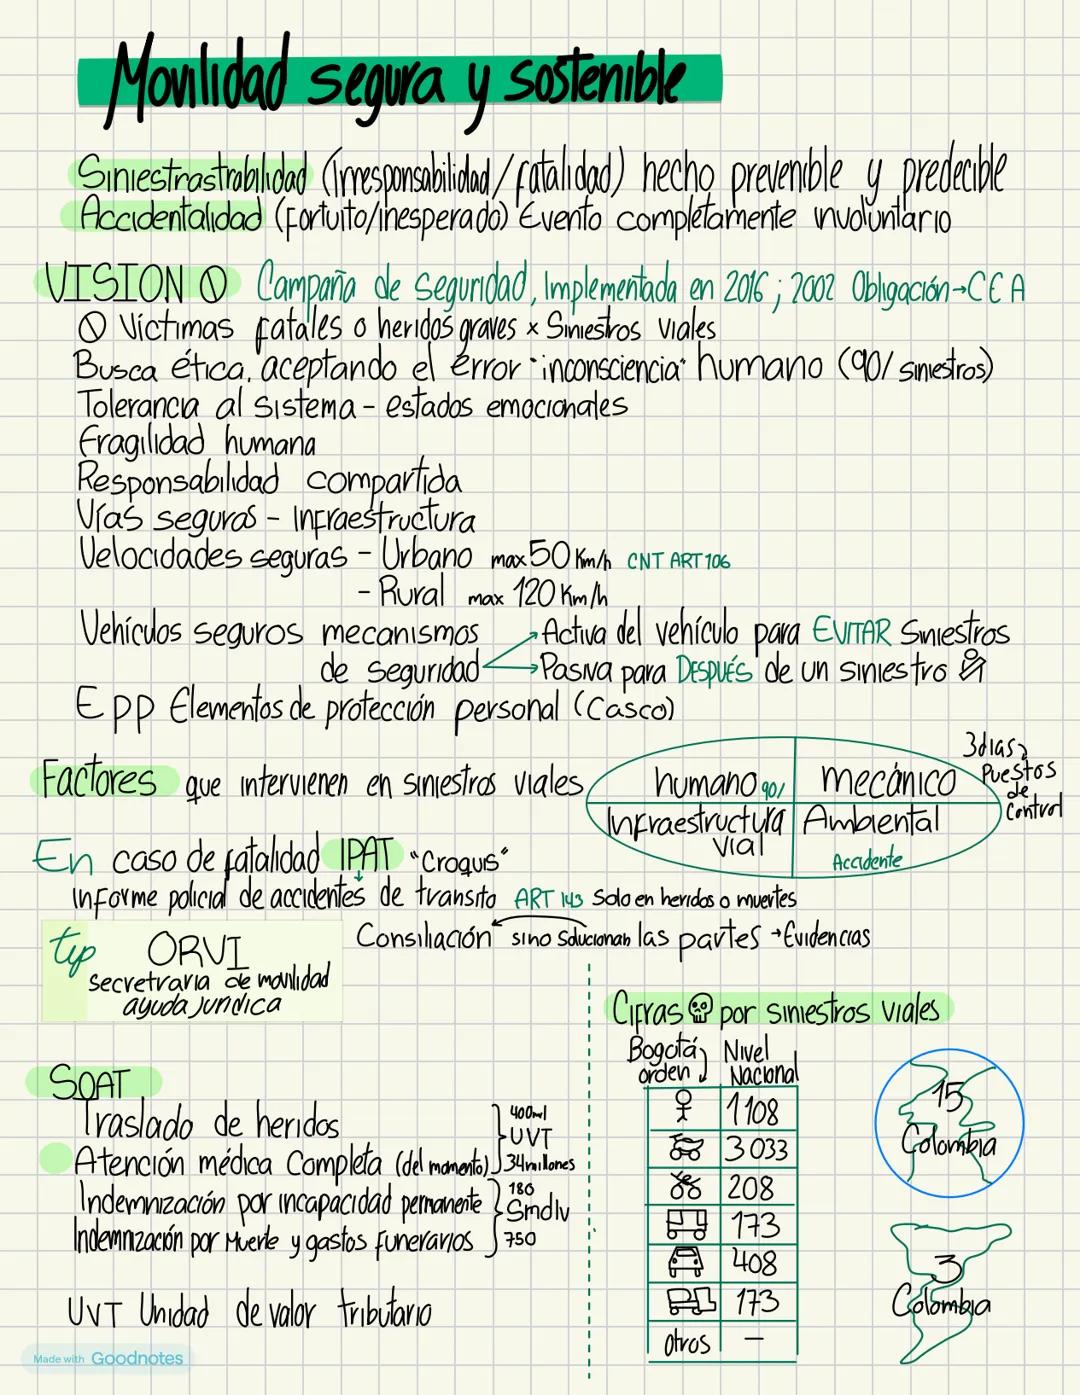 Movilidad segura y sostenible
Siniestrastrabilidad (Irresponsabilidad/fatalidad) hecho prevenible y predecible
Accidentalidad (fortuito/inesperado) Evento completamente involuntario
VISION 0 Campaña de seguridad, Implementada en 2016; 2002 Obligación→CEA
0 Víctimas fatales o heridos graves x Siniestros viales
Busca ética, aceptando el error "inconsciencia" humano (90/ siniestros)
Tolerancia al sistema - estados emocionales
Fragilidad humana
Responsabilidad compartida
Vías seguras - Infraestructura
Velocidades seguras - Urbano max 50 Km/h CNT ART 106
- Rural max 120 Km/h
Vehículos seguros mecanismos → Activa del vehículo para EVITAR Siniestros
de seguridad → Pasiva para DESPUÉS de un siniestro
Epp Elementos de protección personal (Casco)
Factores que intervienen en siniestros viales
humano 90/ mecánico
Infraestructura vial Ambiental
Accidente
3 dias
Puestos
de
Control
En caso de fatalidad IPAT "Croquis"
Informe policial de accidentes de transito ART 143 Solo en heridos o muertes
Consiliación sino solucionan las partes → Evidencias
tip ORVI
secretraria de movilidad
ayuda juridica
Cifras por siniestros viales
Bogotá orden Nivel Nacional
1108
3033
208
173
408
173
otros —
15
Colombia
3
Colombia
SOAT
Traslado de heridos
Atención médica Completa (del momento)
400ml
UVT
34 millones
Indemnización por incapacidad permanente
Indemnización por Muerte y gastos funerarios
180
Smdlv
750
UVT Unidad de valor tributario
Made with Goodnotes